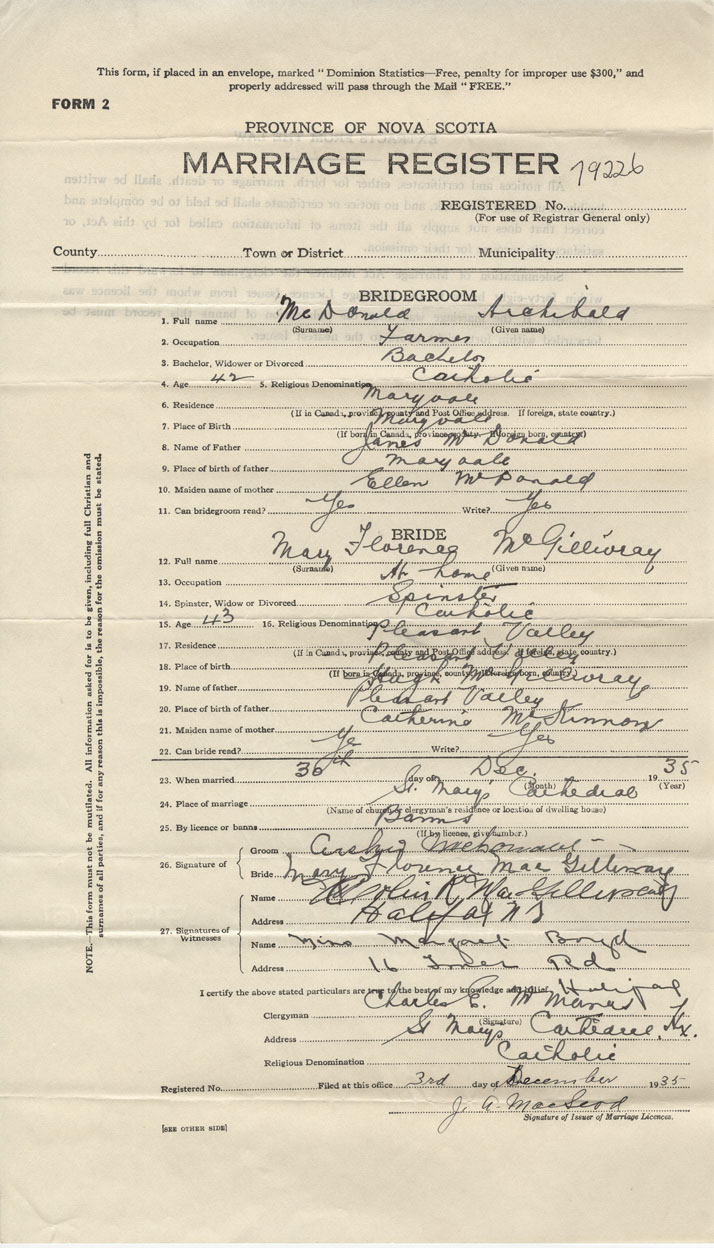 This form, if placed in an envelope, marked "Dominion Statistics—Free, penalty for improper use $300," and
properly addressed will pass through the Mail "FREE."
FORM 2
PROVINCE OF NOVA SCOTIA
MARRIAGE REGISTER 79226
REGISTERED No.
(For use of Registrar General only)
County Town or District Municipality
BRIDEGROOM
1. Full name McDonald Archibald
(Surname) (Given name)
2. Occupation Farmer
3. Bachelor, Widower or Divorced Bachelor
4. Age 42 5. Religious Denomination Catholic
6. Residence Maryvale
(If in Canada, province, county and Post Office address. If foreign, state country.)
7. Place of Birth Maryvale
(If born in Canada, province, county. If foreign born, country)
8. Name of Father James McDonald
9. Place of birth of father Maryvale
10. Maiden name of mother Ellen McDonald
11. Can bridegroom read? Yes Write? Yes
BRIDE
12. Full name Mary Florence McGillivray
(Surname) (Given name)
13. Occupation At home
14. Spinster, Widow or Divorced Spinster
15. Age 43 16. Religious Denomination Catholic
17. Residence Pleasant Valley
(If in Canada, province, county and Post Office address. If foreign, state, country.)
18. Place of birth Pleasant Valley
(If born in Canada, province, county. If foreign born, country.)
19. Name of father Hugh McGillivray
20. Place of birth of father Pleasant Valley
21. Maiden name of mother Catherine McKinnon
22. Can bride read? Yes Write? Yes
23. When married 30th day of Dec. 1935
(Month) (Year)
24. Place of marriage St. Mary's Cathedral
(Name of church or clergyman's residence or location of dwelling house)
25. By licence or banns Banns
(If by licence, give number.)
26. Signature of
Groom McDonald
Bride Mary Florence MacGillivray
27. Signatures of Witnesses
Name Colin R. MacGillivray
Address Halifax NS
Name Miss Margaret Boyd
Address 16 Rd Halifax
I certify the above stated particulars are true to the best of my knowledge and belief.
Clergyman Charles E. McManus
(Signature)
Address St Marys Cathedral, Hx.
Religious Denomination Catholic
Registered No. Filed at this office 3rd day of December 1935
J. A. MacLeod
Signature of Issuer of Marriage Licences.
[SEE OTHER SIDE]
NOTE.—This form must not be mutilated. All information asked for is to be given, including full Christian and
surnames of all parties, and if for any reason this is impossible, the reason for the omission must be stated.